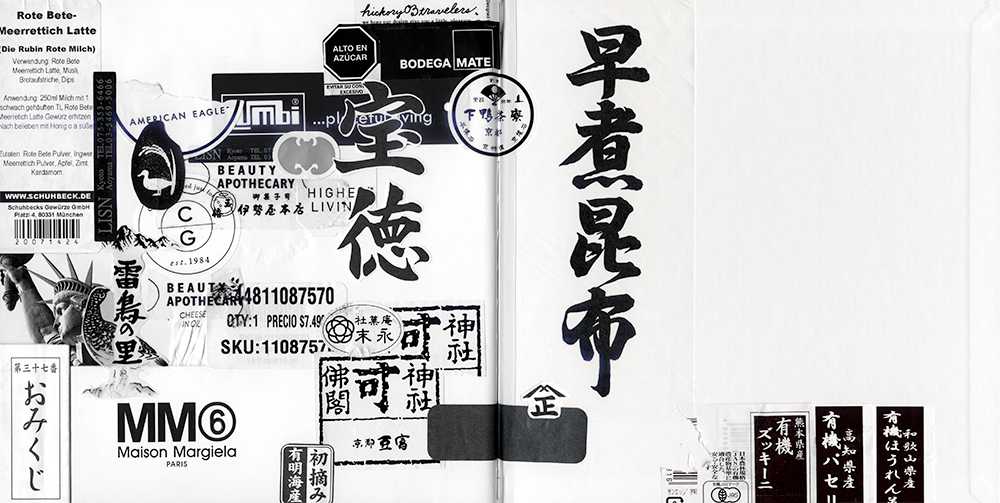 Rote Bete-
Meerrettich Latte
(Die Rubin Rote Milch)
Verwendung: Rote Bete
Meerrettich Latte, Müsli,
Brotaufstriche, Dips
Anwendung: 250ml Milch mit 1
schwach gehäuften TL Rote Bete
Meerrettich Latte Gewürz erhitzen.
Nach belieben mit Honig o.a süßen
Zutaten: Rote Bete Pulver, Ingwer,
Meerrettich Pulver, Apfel, Zimt,
Kardamom.
WWW.SCHUHBECK.DE
Schuhbecks Gewürze GmbH
Platzl 4, 80331 München
20071424
LISN Kyoto TEL 075-353-6466
Aoyama TEL 03-5469-5006
AMERICAN EAGLE
hickory03travelers.
ALTO EN
AZÚCAR
BODEGA MATE
LISN Kyoto
Aoyama
BEAUTY
APOTHECARY
御菓子司
伊勢屋本店
HIGHER
LIVIN
C
G
est.1984
宝徳
下鴨茶寮
京都
早煮昆布
雷鳥の里
BEAUTY
APOTHECARY
CHEESE
IN OIL
44811087570
QTY:1 PRECIO $7.49
SKU:1108757
社菓庵
末永
神社
可
佛閣
可
神社
京都 豆富
第三十七番
おみくじ
MM⑥
Maison Margiela
PARIS
初摘み
有明海産
正
JAS
熊本県産
有機
ズッキーニ
高知県産
有機パセリ
和歌山県産
有機ほうれん